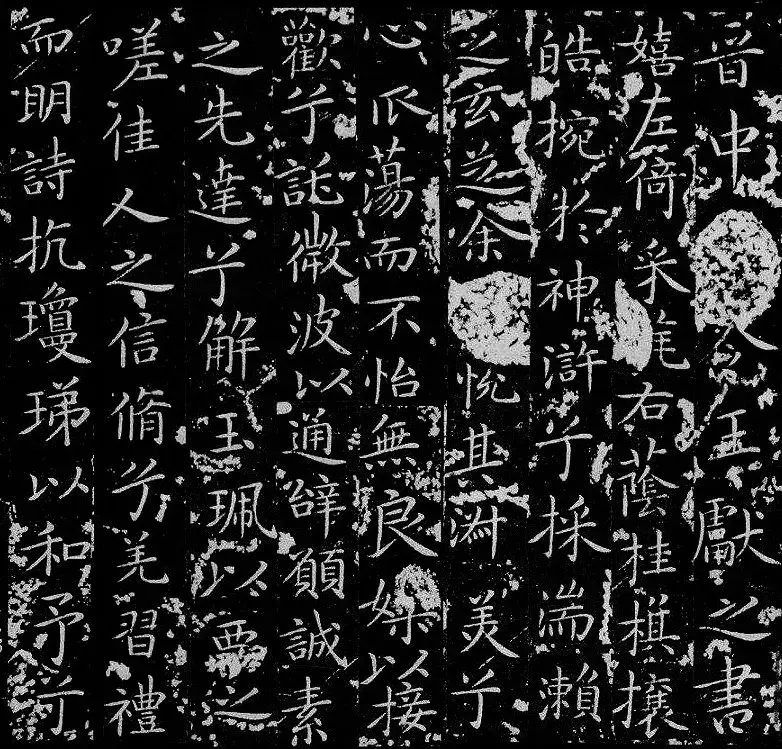 晉中令王獻之書
嬉左倚采旄右蔭桂旗攘
皓捥於神滸兮採湍瀨
之玄芝余悅其淑美兮
心振蕩而不怡無良媒以接
歡兮託微波以通辭願誠素
之先達兮解玉珮以要之
嗟佳人之信脩兮羌習禮
而明詩抗瓊珶以和予兮